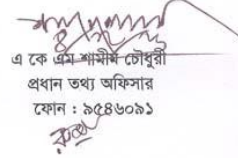 এ কে এম শামীম চৌধুরী
প্রধান তথ্য অফিসার
ফোন : ৯৫৪৬০৯১